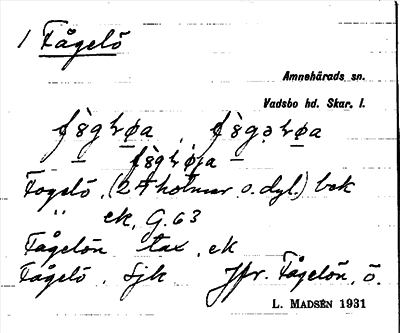 1 Fågelö
Amnehärads sn.
Vadsbo hd. Skar. l.
Fogelö (24 holmar o. dyl.) bek
" ek, G. 63
Fågelön tax, ek
Fågelö, Sjk Jfr. Fågelön, ö.
L. MADSÉN 1931